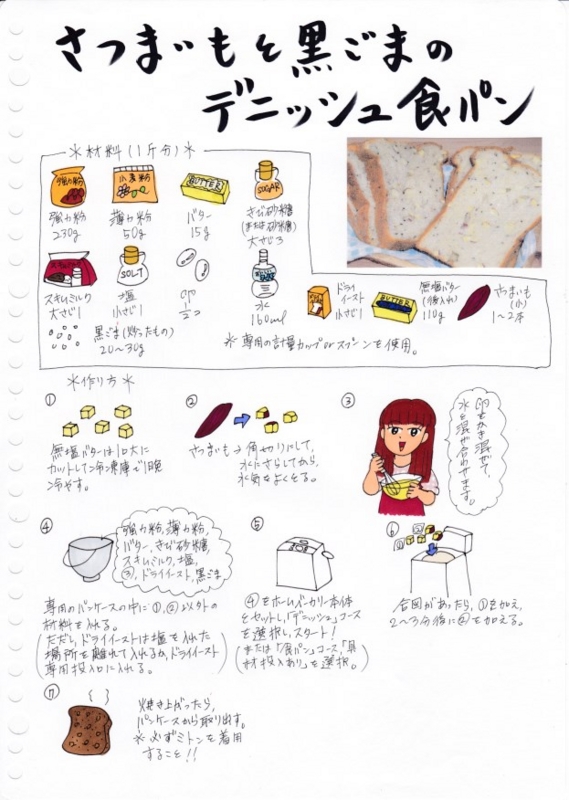 さつまいもと黒ごまの
デニッシュ食パン
＊材料(1斤分)＊
強力粉
小麦粉
BUTTER
SUGAR
強力粉
230g
薄力粉
50g
バター
15g
きび砂糖
(または砂糖)
大さじ3
スキムミルク
SOLT
スキムミルク
大さじ1
塩
小さじ1
卵
2コ
水
160ml
ドライ
イースト
小さじ1
BUTTER
無塩バター
(後入れ)
110g
さつまいも
(小)
1〜2本
黒ごま(炒ったもの)
20〜30g
＊専用の計量カップorスプーンを使用。
＊作り方＊
①
無塩バターは1口大に
カットして冷凍庫で1晩
冷やす。
②
さつまいもは角切りにして、
水にさらしてから、
水気をよくとる。
③
卵をかき混ぜて、
水と混ぜ合わせます。
④
強力粉、薄力粉、
バター、きび砂糖、
スキムミルク、塩、
③、ドライイースト、黒ごま
専用のパンケースの中に①、②以外の
材料を入れる。
(ただし、ドライイーストは塩を入れた
場所を離れて入れるか、ドライイースト
専用投入口に入れる。)
⑤
④をホームベーカリー本体
にセットし、「デニッシュ」コース
を選択し、スタート!
(または「食パン」コース、「具
材投入あり」を選択。)
⑥
合図があったら、①を加え、
2〜3分後に②を加える。
⑦
焼き上がったら、
パンケースから取り出す。
＊必ずミトンを着用
すること!!